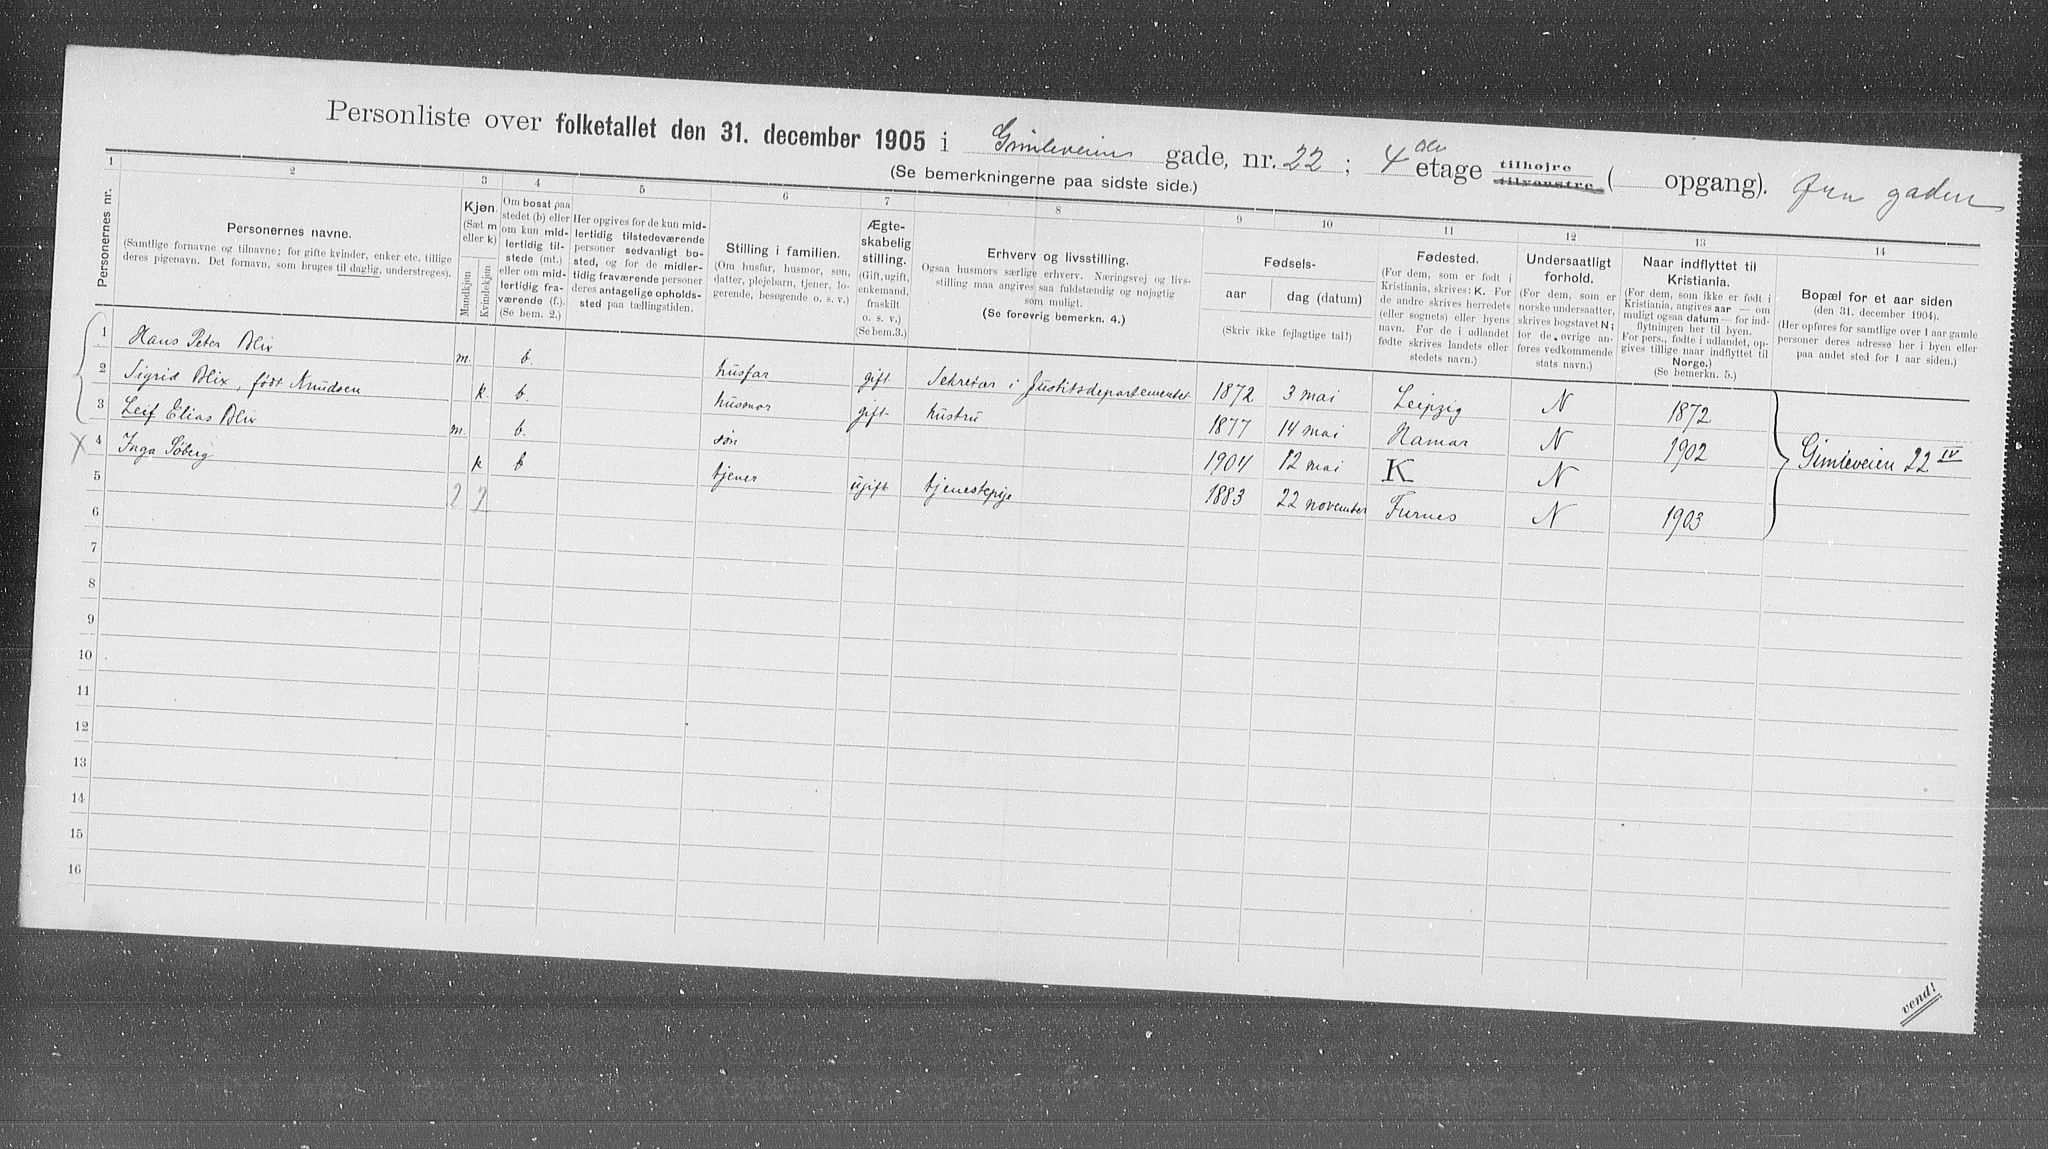 Personliste over folketallet den 31. december 1905 i Gimleveien gade, nr. 22; 4 den etage tilhøjre tilvenstre ( opgang). fra gaden
(Se bemerkningerne paa sidste side.)
1 2 3 4 5 6 7 8 9 10 11 12 13 14
Personernes nr.
Personernes navne.
(Samtlige fornavne og tilnavne; for gifte kvinder, enker etc. tillige
deres pigenavn. Det fornavn, som bruges til daglig, understreges).
Kjøn.
(Sæt m
eller k)
Mandkjøn
Kvindekjøn
Om bosat paa
stedet (b) eller
om kun mid-
lertidig til-
stede (mt.)
eller om mid-
lertidig fra-
værende (f.).
(Se bem. 2.)
Her opgives for de kun mid-
lertidig tilstedeværende
personer sedvanligt bo-
sted, og for de midler-
tidig fraværende personer
deres antagelige opholds-
sted paa tællingstiden.
Stilling i familien.
(Om husfar, husmor, søn,
datter, plejebarn, tjener, lo-
gerende, besøgende o. s. v.)
Ægte-
skabelig
stilling.
(Gift, ugift,
enkemand,
fraskilt
o. s. v.)
(Se bem. 3.)
Erhverv og livsstilling.
Ogsaa husmors særlige erhverv. Næringsvej og livs-
stilling maa angives saa fuldstændig og nøjagtig
som muligt.
(Se forøvrig bemerkn. 4.)
Fødsels-
aar
dag (datum)
(Skriv ikke fejlagtige tal!)
Fødested.
(For dem, som er født i
Kristiania, skrives: K. For
de andre skrives herredets
(eller sognets) eller byens
navn. For de i udlandet
fødte skrives landets eller
stedets navn.)
Undersaatligt
forhold.
(For dem, som er
norske undersaatter,
skrives bogstavet N;
for de øvrige an-
føres vedkommende
stats navn.)
Naar indflyttet til
Kristiania.
(For dem, som ikke er født i
Kristiania, angives aar — om
muligt ogsaa datum — for ind-
flytningen her til byen.
For pers., fødte i udlandet, op-
gives tillige naar indflyttet til
Norge.)
(Se bemerkn. 5.)
Bopæl for et aar siden
(den 31. december 1904).
(Her opføres for samtlige over 1 aar gamle
personer deres adresse her i byen eller
paa andet sted for 1 aar siden.)
1 Hans Peter Blix m. b husfar gift Sekretær i Justitsdepartementet 1872 3 mai Leipzig N 1872
2 Sigrid Blix, født Knudsen k. b. husmor gift hustru 1877 14 mai Hamar N 1902
3 Leif Elias Blix m. b. søn 1904 12 mai K N
Gimleveien 22 IV
4 Inga Søberg k b tjener ugift tjenestepige 1883 22 november Furnes N 1903
5 2 2
6
7
8
9
10
11
12
13
14
15
16
vend!